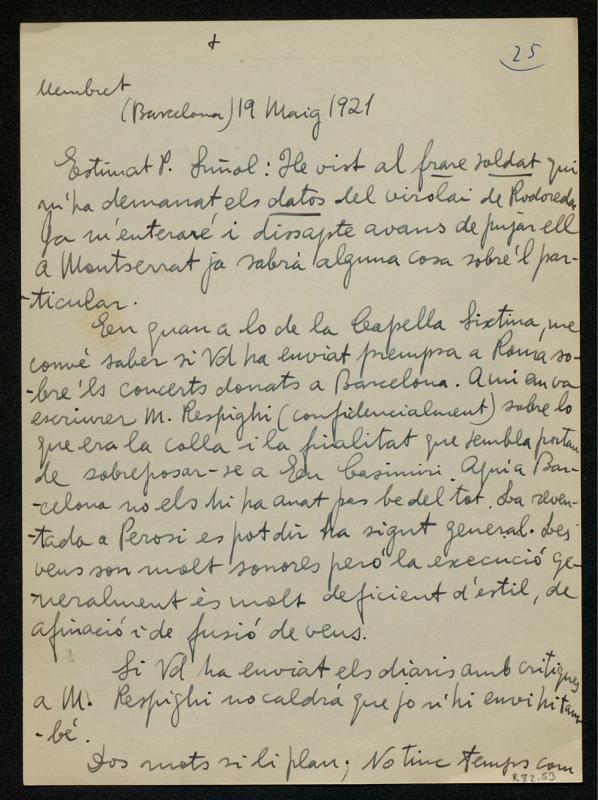 +
25
Membret
(Barcelona) 19 Maig 1921
Estimat P. Suñol: He vist al frare soldat qui
m'ha demanat els datos del virolai de Rodoreda
Ja m'enteraré i dissapte avans de pujar ell
a Montserrat ja sabrà alguna cosa sobre'l par-
-ticular.
En quan a lo de la Capella Sixtina, me
convé saber si Vd ha enviat prempsa a Roma so-
-bre'ls concerts donats a Barcelona. A mi em va
escriurer M. Respighi (confidencialment) sobre lo
que era la colla i la finalitat que sembla portan
de sobreposar-se a En Casimiri. Aqui a Bar-
-celona no els hi ha anat pas be del tot. La reven-
-tada a Perosi es pot dir ha sigut general. Les
veus son molt sonores però la execució ge-
-neralment és molt deficient d'estil, de
afinació i de fusió de veus.
Si Vd ha enviat els diaris amb critiques
a M. Respighi no caldrà que jo n'hi envihi tam-
-bé.
Dos mots si li plau; No tinc temps com
R 82.53